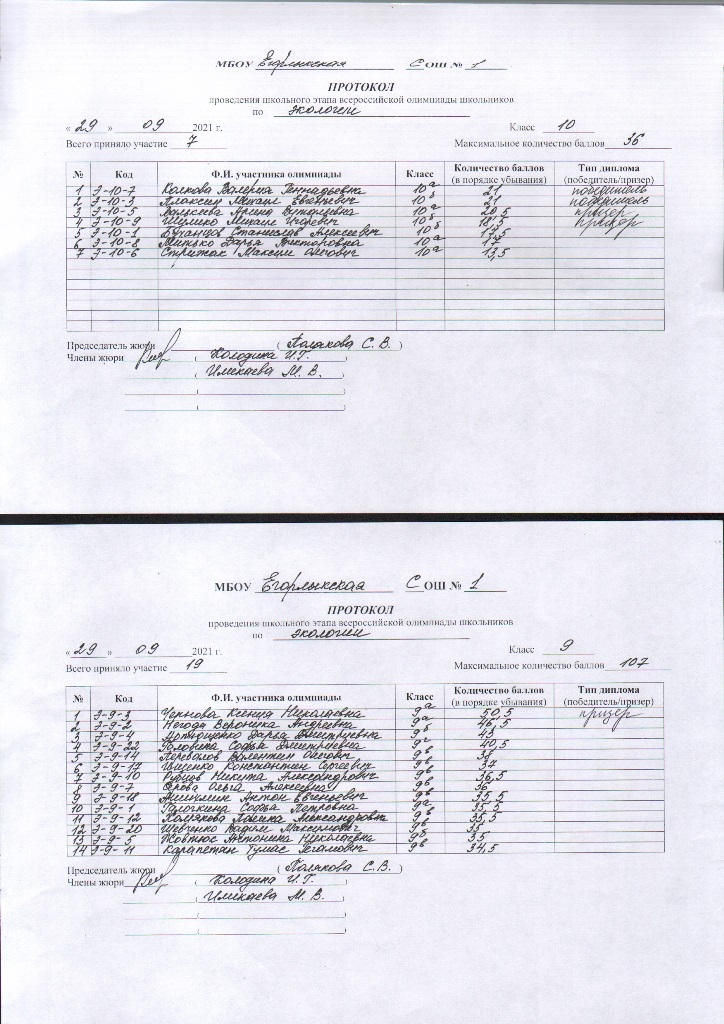 МБОУ Егорлыкская СОШ № 1
ПРОТОКОЛ
проведения школьного этапа всероссийской олимпиады школьников
по экологии
« 29 » 09 2021 г. Класс 10
Всего приняло участие 7 Максимальное количество баллов 36
№ Код Ф.И. участника олимпиады Класс Количество баллов (в порядке убывания) Тип диплома (победитель/призер)
1 Э-10-7 Валерия Геннадьевна 10а 21 победитель
2 Э-10-3 Михаил Евгеньевич 10б 21 победитель
3 Э-10-5 Арина Витальевна 10а 20,5 призер
4 Э-10-9 Михаил Игоревич 10б 18,5 призер
5 Э-10-1 Станислав Алексеевич 10б 17,5
6 Э-10-8 Дарья Викторовна 10а 17
7 Э-10-6 Стрижак Максим Олегович 10а 13,5
Председатель жюри ( Полякова С. В. )
Члены жюри ( Колодина И.Г. )
( Имекаева М. В. )
МБОУ Егорлыкская СОШ № 1
ПРОТОКОЛ
проведения школьного этапа всероссийской олимпиады школьников
по экологии
« 29 » 09 2021 г. Класс 9
Всего приняло участие 19 Максимальное количество баллов 107
№ Код Ф.И. участника олимпиады Класс Количество баллов (в порядке убывания) Тип диплома (победитель/призер)
1 Э-9-3 Чернова Ксения Николаевна 9а 50,5 призер
2 Э-9-2 Негода Вероника Андреевна 9а 46,5
3 Э-9-4 Дарья Дмитриевна 9б 43
4 Э-9-22 Головина Софья Дмитриевна 9г 40,5
5 Э-9-14 Валентин Олегович 9в 38
6 Э-9-17 Ищенко Константин Сергеевич 9в 37
7 Э-9-10 Рубцов Никита Александрович 9в 36,5
8 Э-9-7 Ольга Алексеевна 9в 36
9 Э-9-18 Антон Евгеньевич 9в 35,5
10 Э-9-1 Галочкина Софья Петровна 9а 35,5
11 Э-9-12 Александровна 9в 35,5
12 Э-9-20 Шевченко Вадим Максимович 9в 35
13 Э-9-5 Жовтюс Антонина Николаевна 9б 35
14 Э-9-11 Карапетян Тумас 9в 34,5
Председатель жюри ( Полякова С.В. )
Члены жюри ( Колодина И.Г. )
( Имекаева М. В. )